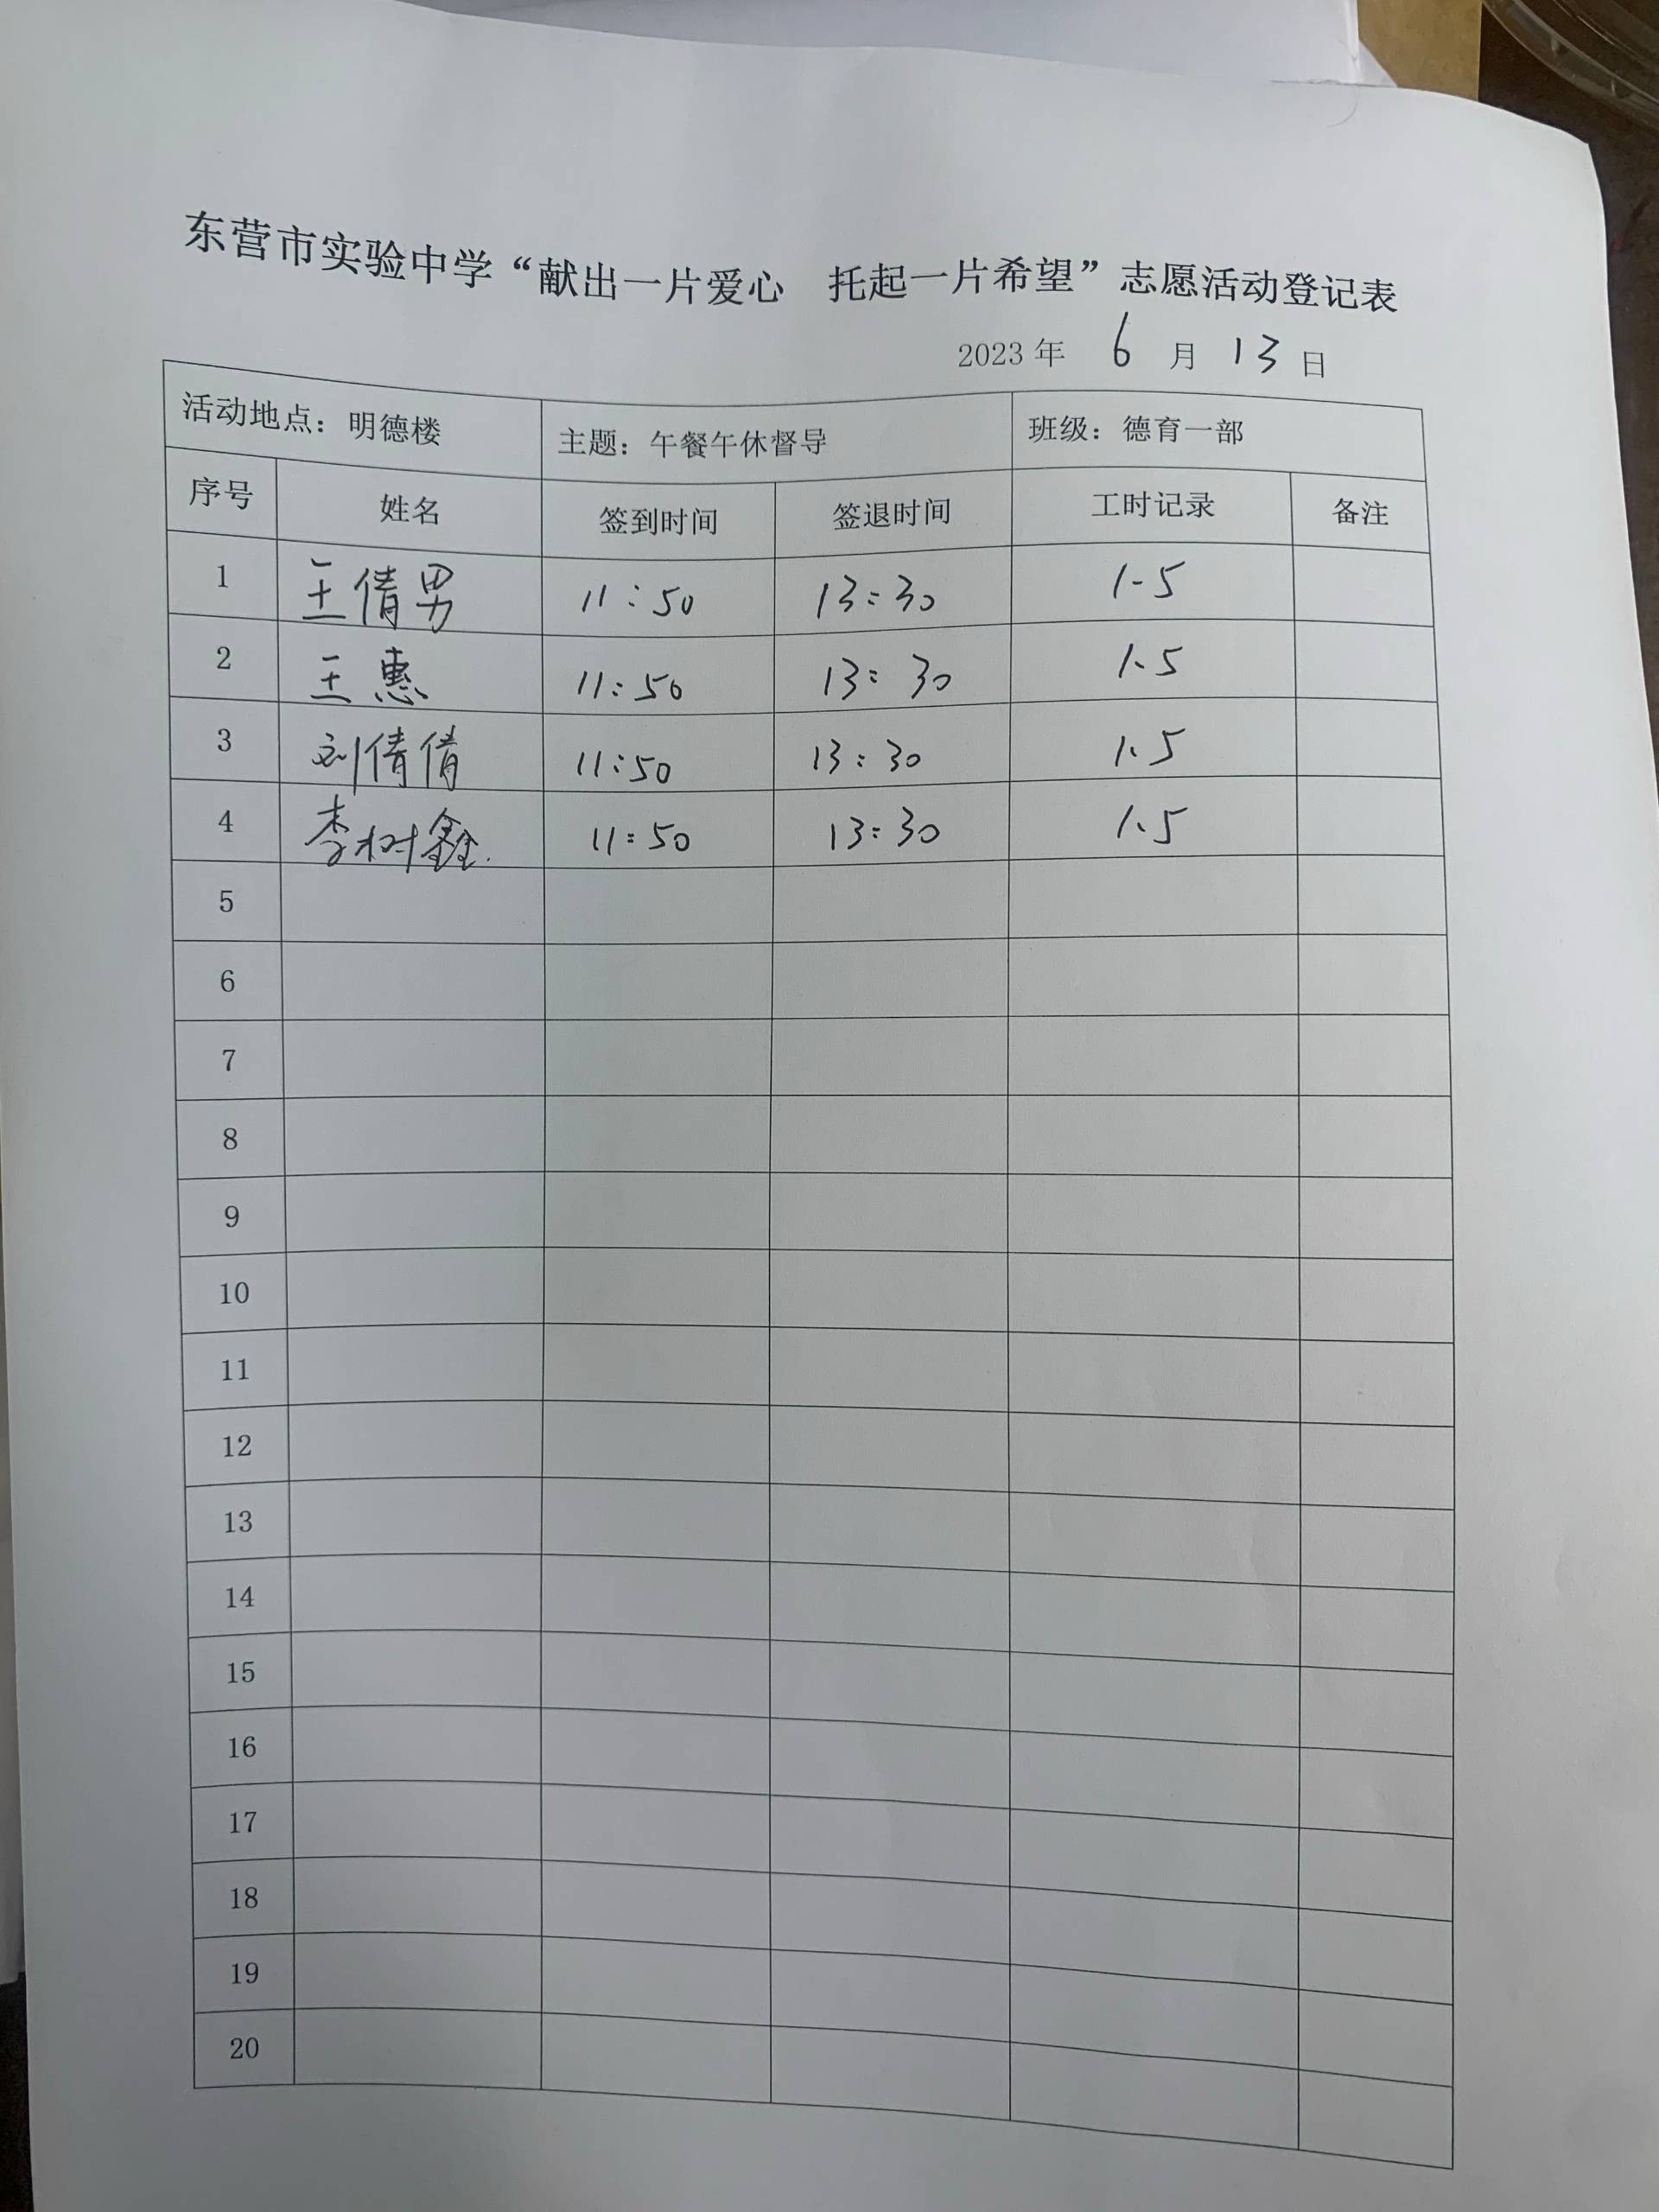 东营市实验中学“献出一片爱心 托起一片希望”志愿活动登记表
2023 年 6 月 13 日
活动地点：明德楼 主题：午餐午休督导 班级：德育一部
序号 姓名 签到时间 签退时间 工时记录 备注
1 王倩男 11:50 13:30 1.5
2 王惠 11:50 13:30 1.5
3 刘倩倩 11:50 13:30 1.5
4 李树鑫 11:50 13:30 1.5
5
6
7
8
9
10
11
12
13
14
15
16
17
18
19
20